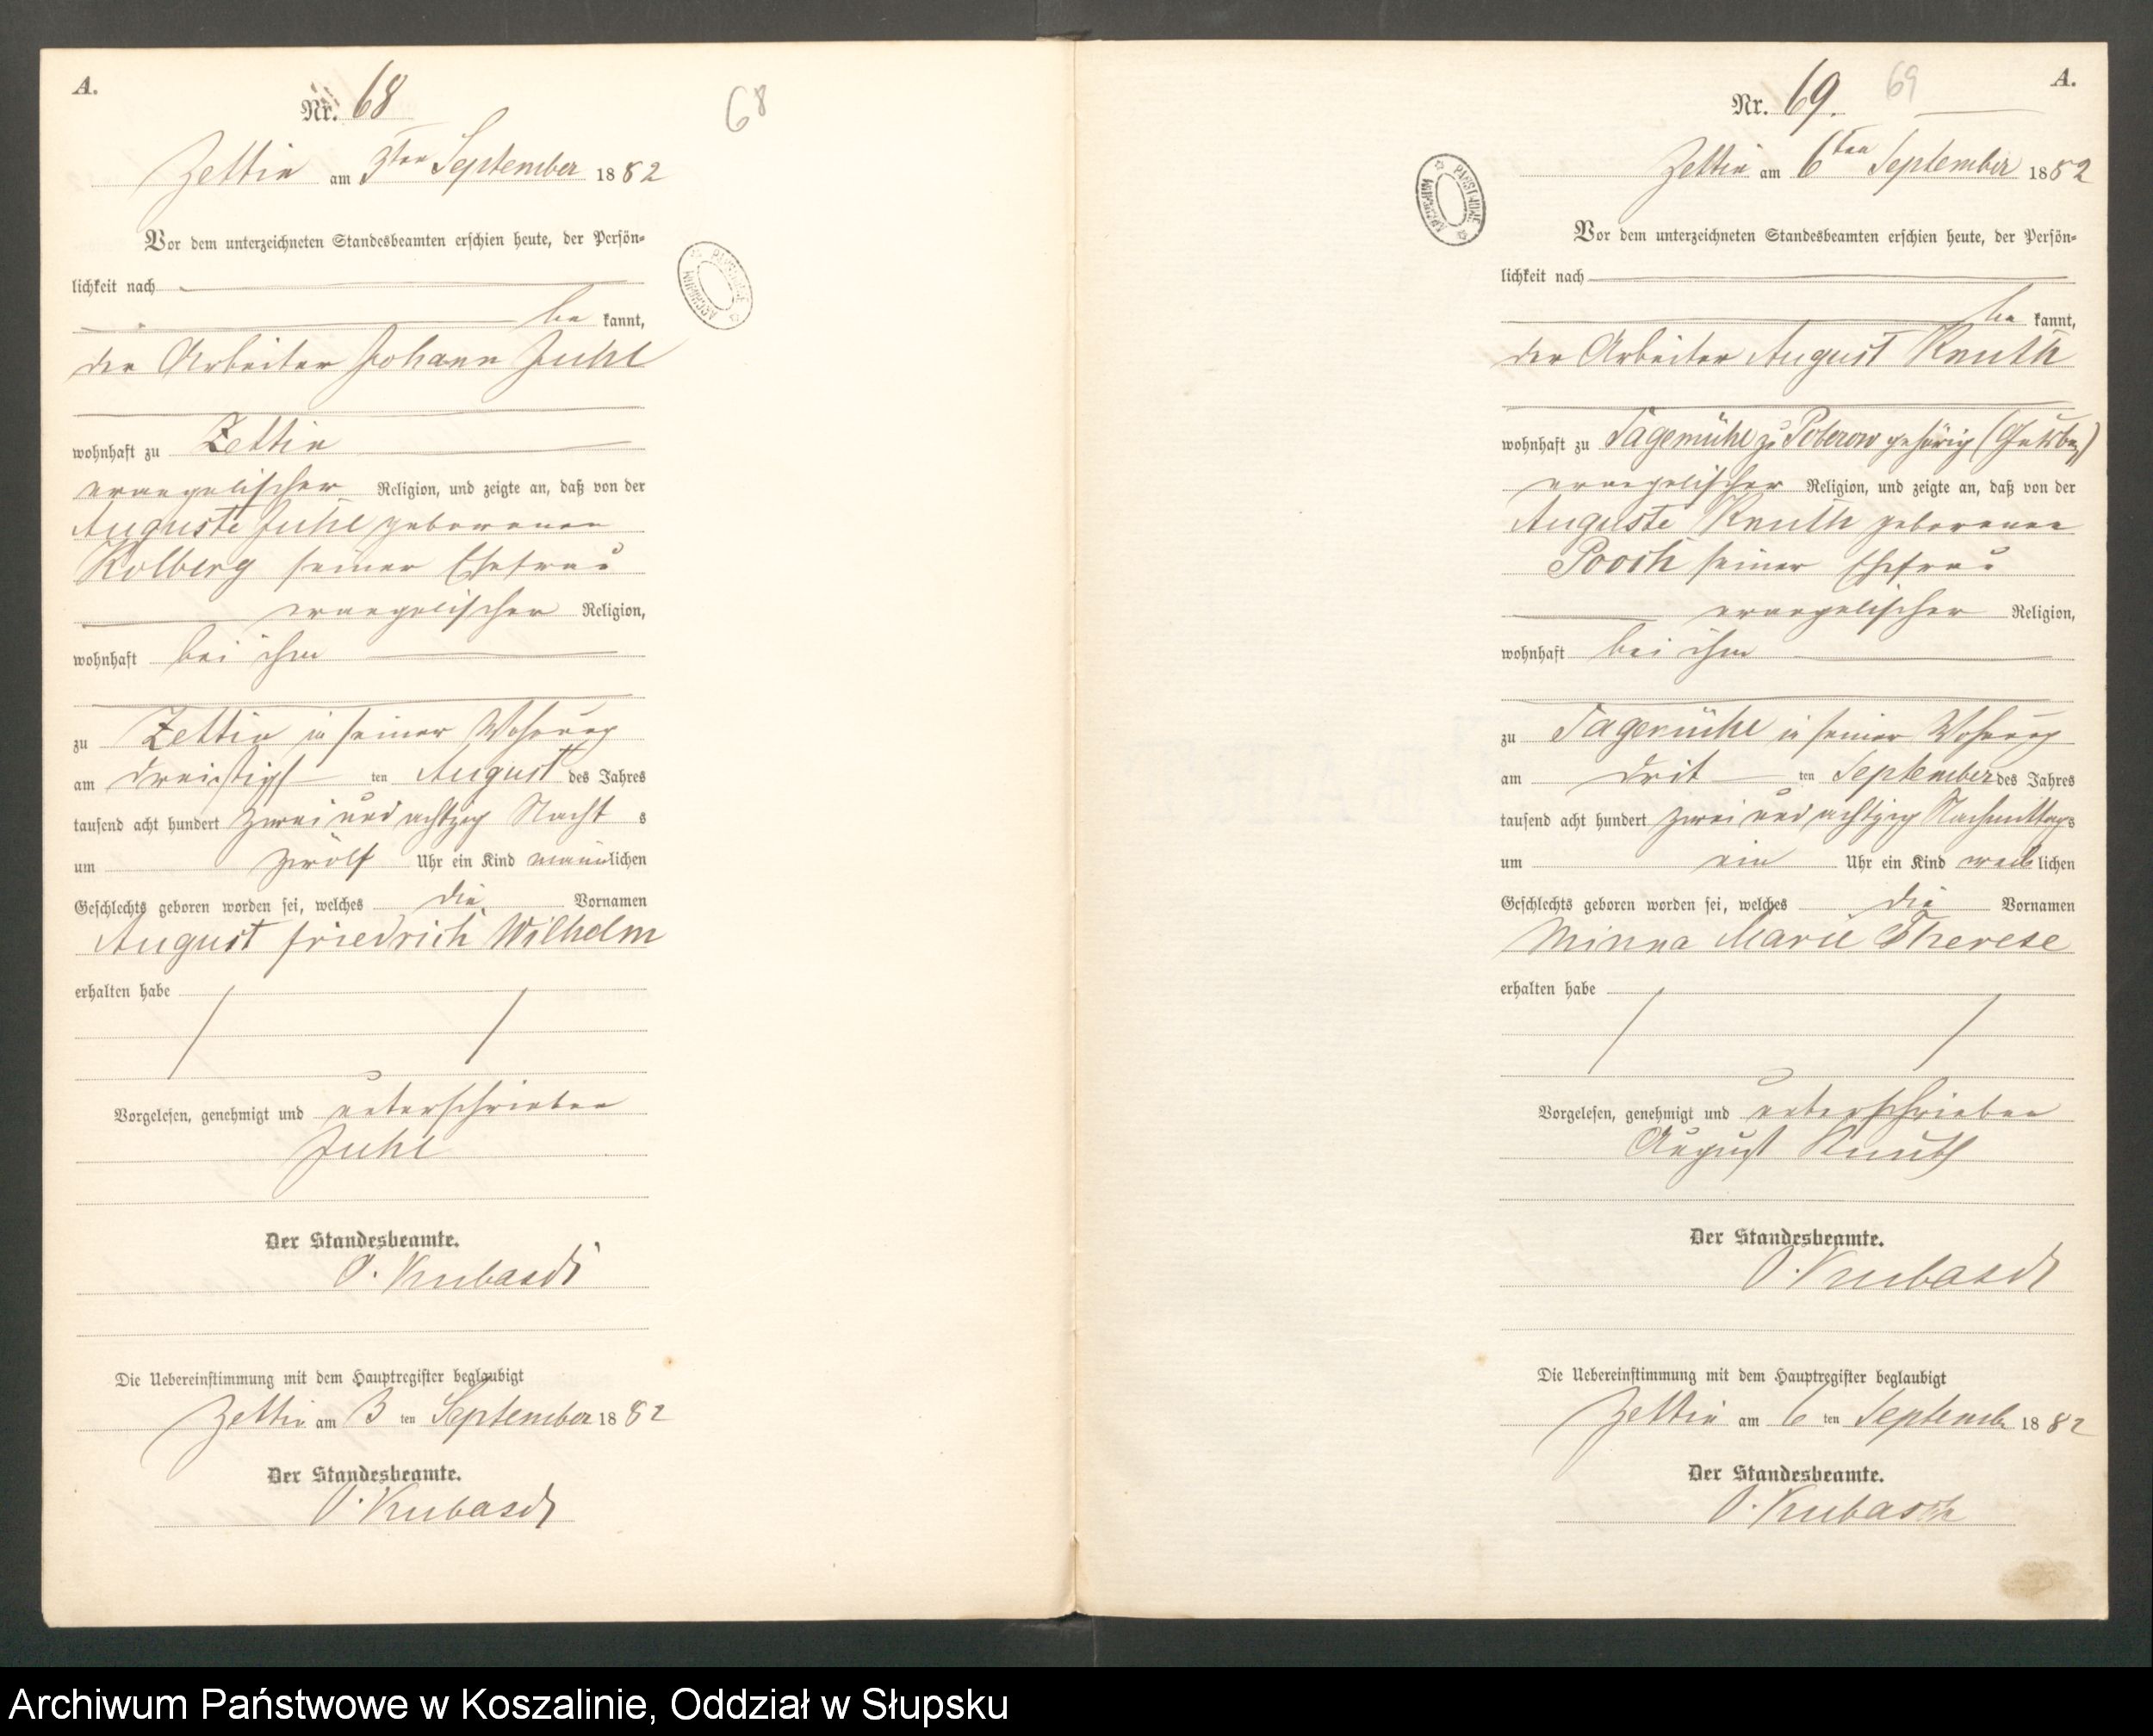 A.
Nr. 68
68
Zettin am 3ten September 1882
Vor dem unterzeichneten Standesbeamten erschien heute, der Persön-
lichkeit nach
be kannt,
der Arbeiter Johann Juhl
wohnhaft zu Zettin
evangelischer Religion, und zeigte an, daß von der
Auguste Juhl geborenen
Kolberg seiner Ehefrau
evangelischer Religion,
wohnhaft bei ihm
zu Zettin in seiner Wohnung
am dreißigst ten August des Jahres
tausend acht hundert zwei und achtzig Nacht s
um zwölf Uhr ein Kind männlichen
Geschlechts geboren worden sei, welches die Vornamen
August Friedrich Wilhelm
erhalten habe
Vorgelesen, genehmigt und unterschrieben
Juhl
Der Standesbeamte.
Die Uebereinstimmung mit dem Hauptregister beglaubigt
Zettin am 3 ten September 1882
Der Standesbeamte.
A.
Nr. 69.
69
Zettin am 6ten September 1882
ARCHIWUM PAŃSTWOWE
Vor dem unterzeichneten Standesbeamten erschien heute, der Persön-
lichkeit nach
be kannt,
der Arbeiter August Knuth
wohnhaft zu Sagemühl zu Poberow gehörig
evangelischer Religion, und zeigte an, daß von der
Auguste Knuth geborenen
Poosk seiner Ehefrau
evangelischer Religion,
wohnhaft bei ihm
zu Sagemühl in seiner Wohnung
am drit ten September des Jahres
tausend acht hundert zwei und achtzig Nachmittags
um ein Uhr ein Kind weiblichen
Geschlechts geboren worden sei, welches die Vornamen
Minna Marie Therese
erhalten habe
Vorgelesen, genehmigt und unterschrieben
August Knuth
Der Standesbeamte.
Die Uebereinstimmung mit dem Hauptregister beglaubigt
Zettin am 6 ten Septemb 1882
Der Standesbeamte.
Archiwum Państwowe w Koszalinie, Oddział w Słupsku